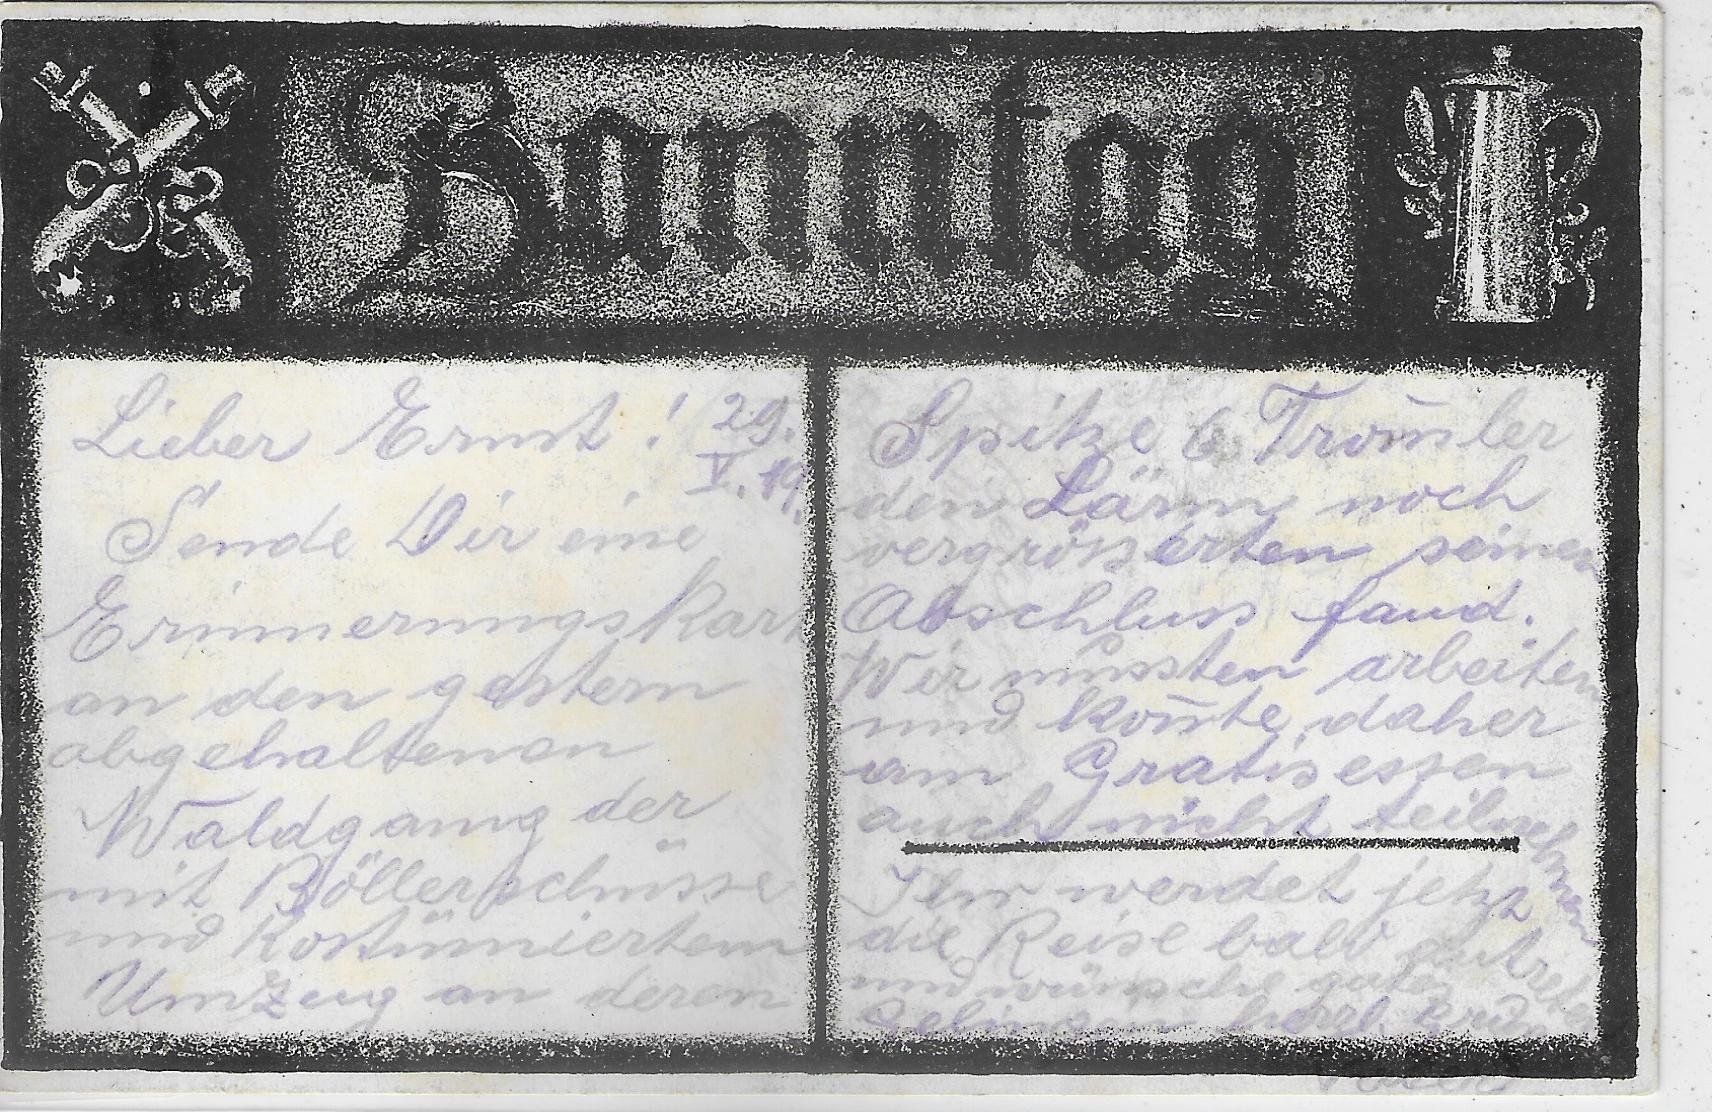 Sonntag
Lieber Ernst! 29.
V. 19.
Sende Dir eine
Erinnerungskart
an den gestern
abgehaltenen
Waldgang der
mit Böllerschüsse
und kostümiertem
Umzug an deren
Spitze 6 Trom̄ler
den Lärm noch
vergrösserten seinen
Abschluss fand.
Wir mussten arbeiten
und kon̄te daher
am Gratisessen
auch nicht teilnehmen
Ihr werdet jetzt
die Reise bald antreten
und wünsche gutes
Gelingen herzl.